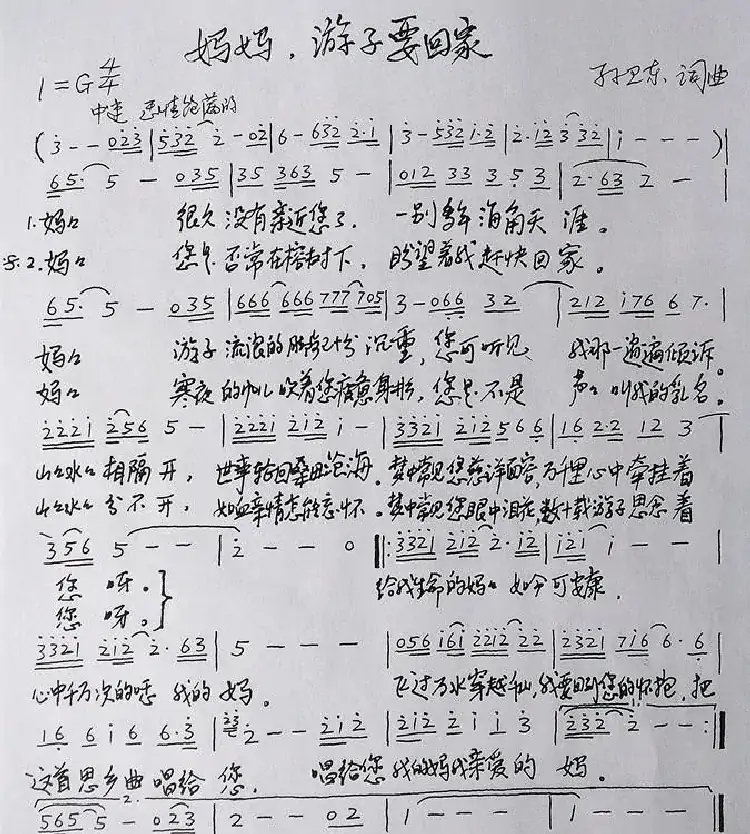 妈妈，游子要回家
1=G 4/4
孙卫东 词曲
中速
(3--023|532 2-02|6-632 2·1|3-532 1·2|2·12 3 332|1---)|
65· 5 - 035|35 363 5 -|012 33 3 53|2·63 2 -|
1.妈妈 很久没有亲近您了，一别多年海角天涯。
2.妈妈 您是否常在榕树下，盼望着我赶快回家。
65· 5 - 035|666 666 777 705|3-066 32|212 176 6 7·|
妈妈 游子流浪的 沉重，您可听见 我那一遍遍倾诉。
妈妈 寒夜的 吹着您疲惫身影，您是不是 声声叫我的乳名。
2221 256 5 -|2221 212 1 -|3321 212 566|16 2·2 12 3|
山山水水相隔开，世事轮回桑田沧海。梦中常见您慈祥面容，万千里心中牵挂着
山山水水分不开，如血亲情怎能忘怀。梦中常见您眼中泪花，数十载游子思念着
356 5--|2--0||:3321 212 2·12|121 1--|
您 呀。 给我生命的妈妈 如今可安康，
您 呀。
3321 212 2·63|5---|056 161 2212 22|2321 716 6·6|
心中千万次的 我的妈。 飞过万水穿越千山，我要回到您的怀抱，把
16 6 1 6 6·3|23 2--212|212 2 1 1 3|232 2--:||
这首思乡曲唱给 您， 唱给您我的妈我亲爱的 妈。
2.
565 5-023|2--02|1---|1---||